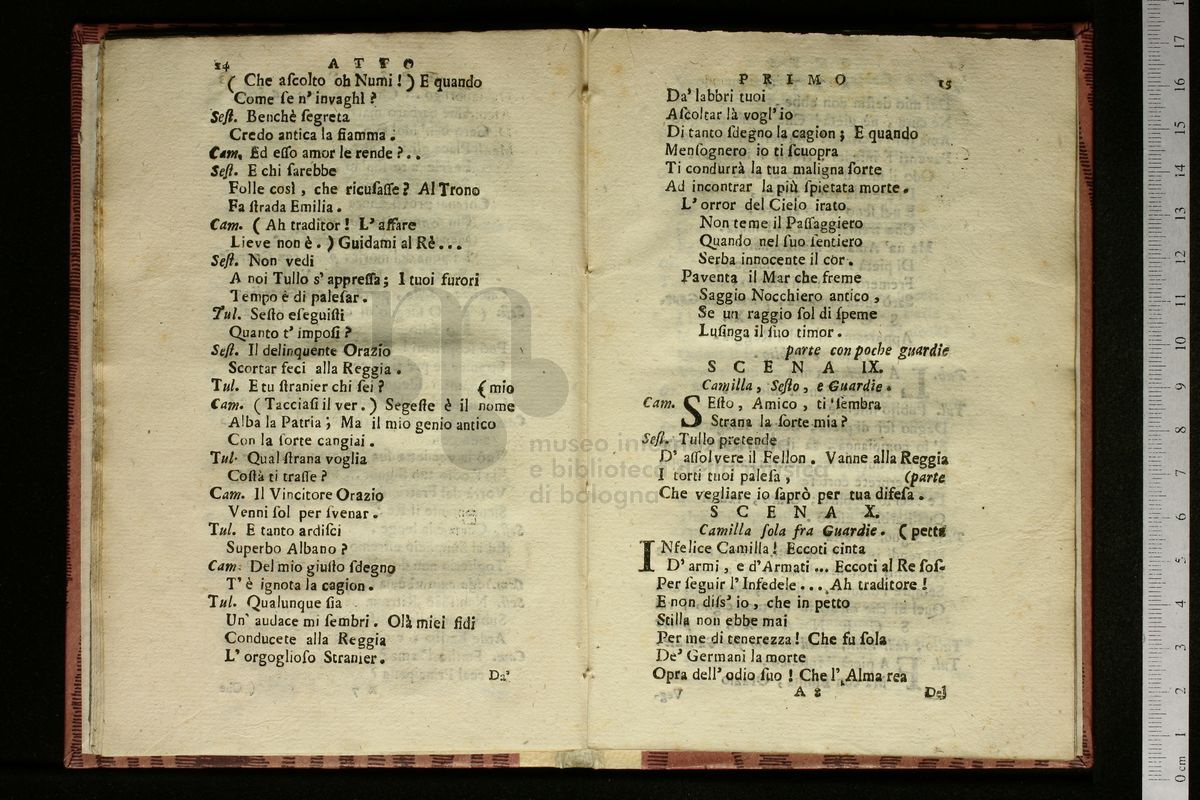 14 ATTO
( Che aſcolto oh Numi ! ) E quando
Come ſe n' invaghì ?
Seſt. Benchè ſegreta
Credo antica la fiamma .
Cam. Ed eſſo amor le rende ? . .
Seſt. E chi ſarebbe
Folle così , che ricuſaſſe ? Al Trono
Fa ſtrada Emilia .
Cam. ( Ah traditor ! L' affare
Lieve non è . ) Guidami al Rè . . .
Seſt. Non vedi
A noi Tullo s' appreſſa ; I tuoi furori
Tempo è di paleſar .
Tul. Seſto eſeguiſti
Quanto t' impoſi ?
Seſt. Il delinquente Orazio
Scortar feci alla Reggia .
Tul. E tu ſtranier chi ſei ? ( mio
Cam. ( Tacciaſi il ver . ) Segeſte è il nome
Alba la Patria ; Ma il mio genio antico
Con la ſorte cangiai .
Tul. Qual ſtrana voglia
Coſtà ti traſſe ?
Cam. Il Vincitore Orazio
Venni ſol per ſvenar .
Tul. E tanto ardiſci
Superbo Albano ?
Cam. Del mio giuſto ſdegno
T' è ignota la cagion .
Tul. Qualunque ſia
Un' audace mi ſembri . Olà miei fidi
Conducete alla Reggia
L' orgoglioſo Stranier .
Da'
PRIMO 15
Da' labbri tuoi
Aſcoltar là vogl' io
Di tanto ſdegno la cagion ; E quando
Menſognero io ti ſcuopra
Ti condurrà la tua maligna ſorte
Ad incontrar la più ſpietata morte .
L' orror del Cielo irato
Non teme il Paſſaggiero
Quando nel ſuo ſentiero
Serba innocente il cor .
Paventa il Mar che freme
Saggio Nocchiero antico ,
Se un raggio ſol di ſpeme
Luſinga il ſuo timor .
parte con poche guardie
SCENA IX.
Camilla , Seſto , e Guardie .
Cam. SEſto , Amico , ti ſembra
Strana la ſorte mia ?
Seſt. Tullo pretende
D' aſſolvere il Fellon . Vanne alla Reggia
I torti tuoi paleſa , (parte
Che vegliare io ſaprò per tua difeſa .
SCENA X.
Camilla ſola fra Guardie . ( petta
INfelice Camilla ! Eccoti cinta
D' armi , e d'Armati ... Eccoti al Re ſoſ-
Per ſeguir l' Infedele . . . Ah traditore !
E non diſs' io , che in petto
Stilla non ebbe mai
Per me di tenerezza ! Che fu ſola
De' Germani la morte
Opra dell' odio ſuo ! Che l' Alma rea
Del
museo
e biblioteca della musica
di bologna
0 cm 1 2 3 4 5 6 7 8 9 10 11 12 13 14 15 16 17